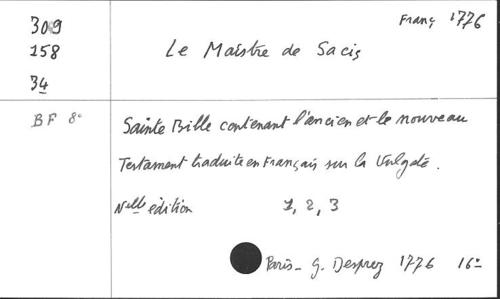 Franç 1776
309
158
34
Le Maistre de Sacis
BF 8°
Sainte Bible contenant l'ancien et le nouveau
Testament traduite en Français sur la Vulgate.
Nelle édition 1, 2, 3
Paris - G. Desprez 1776 16°